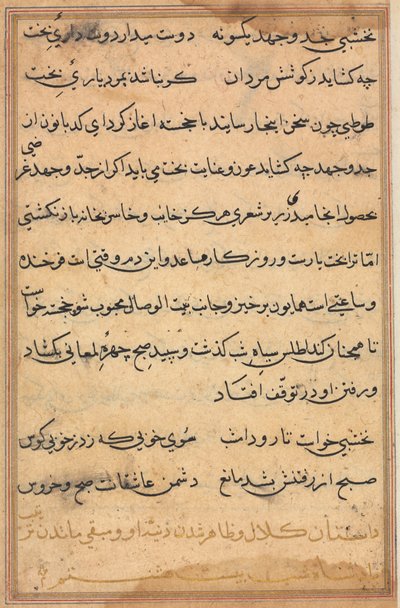 نخشبی جد و جهد یکسو نه دوست میدار دوست داریٔ بخت
چه کشاید ز کوشش مردان کر نباشد بمرد یاریٔ بخت
طوطی چون سخن اینجا رسانید با خجسته اغاز کرد ای کدبانو از
جد و جهد چه کشاید عون و عنایت بخت می باید اکر از جد و جهد غرضی
بحصول انجامیدی زیر و شعری هرکز خایب و خاسر بخانه باز نکشتی
اما ترا بخت یارست و روزکار مساعد و این دم وقتی است فرخنده
و ساعتی است همایون برخیز و جانب بیت الوصال محبوب شو خجسته خواست
تا همچنان کند اطلس سیاه شب کذشت و سپید صبح چهرهٔ لمعانی بکشاد
و رفتن او در توقف افتاد
نخشبی خواست تا رود امشب سوی خوبی که زد ز خوبی کوس
صبح از رفتنش بشد مانع دشمن عاشقانست صبح و خروس
داستان کلال و ظاهر شدن او و مبقی ماندن
شب بیست هشتم